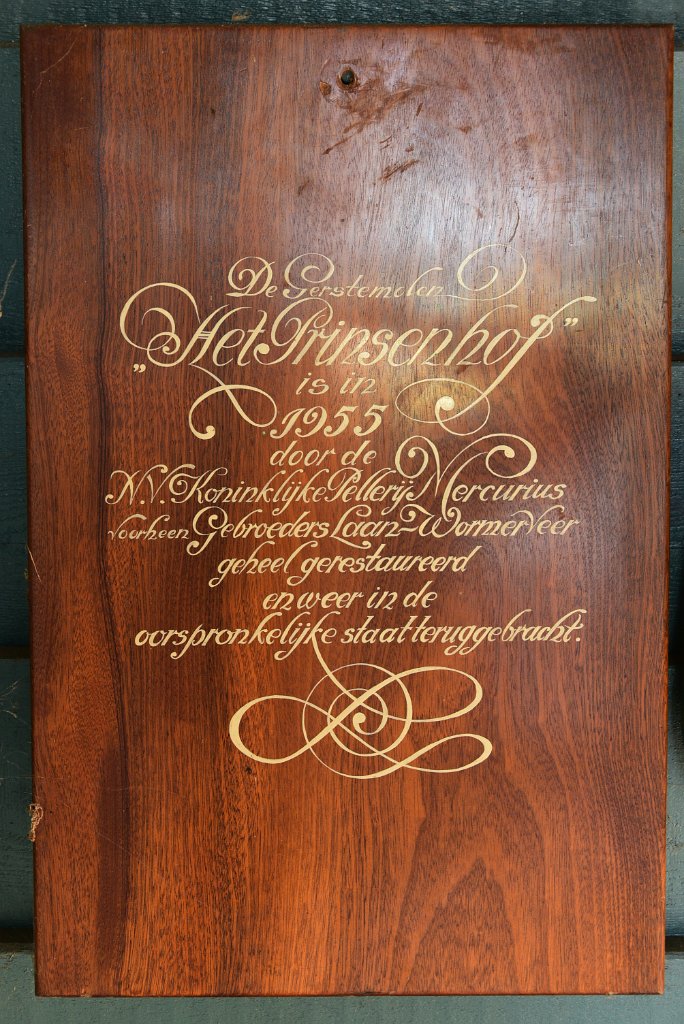 De Gerstemolen
„Het Prinsenhof”
is in
1955
door de
N.V. Koninklijke Pellerij Mercurius
voorheen Gebroeders Laan-Wormerveer
geheel gerestaureerd
en weer in de
oorspronkelijke staat teruggebracht.